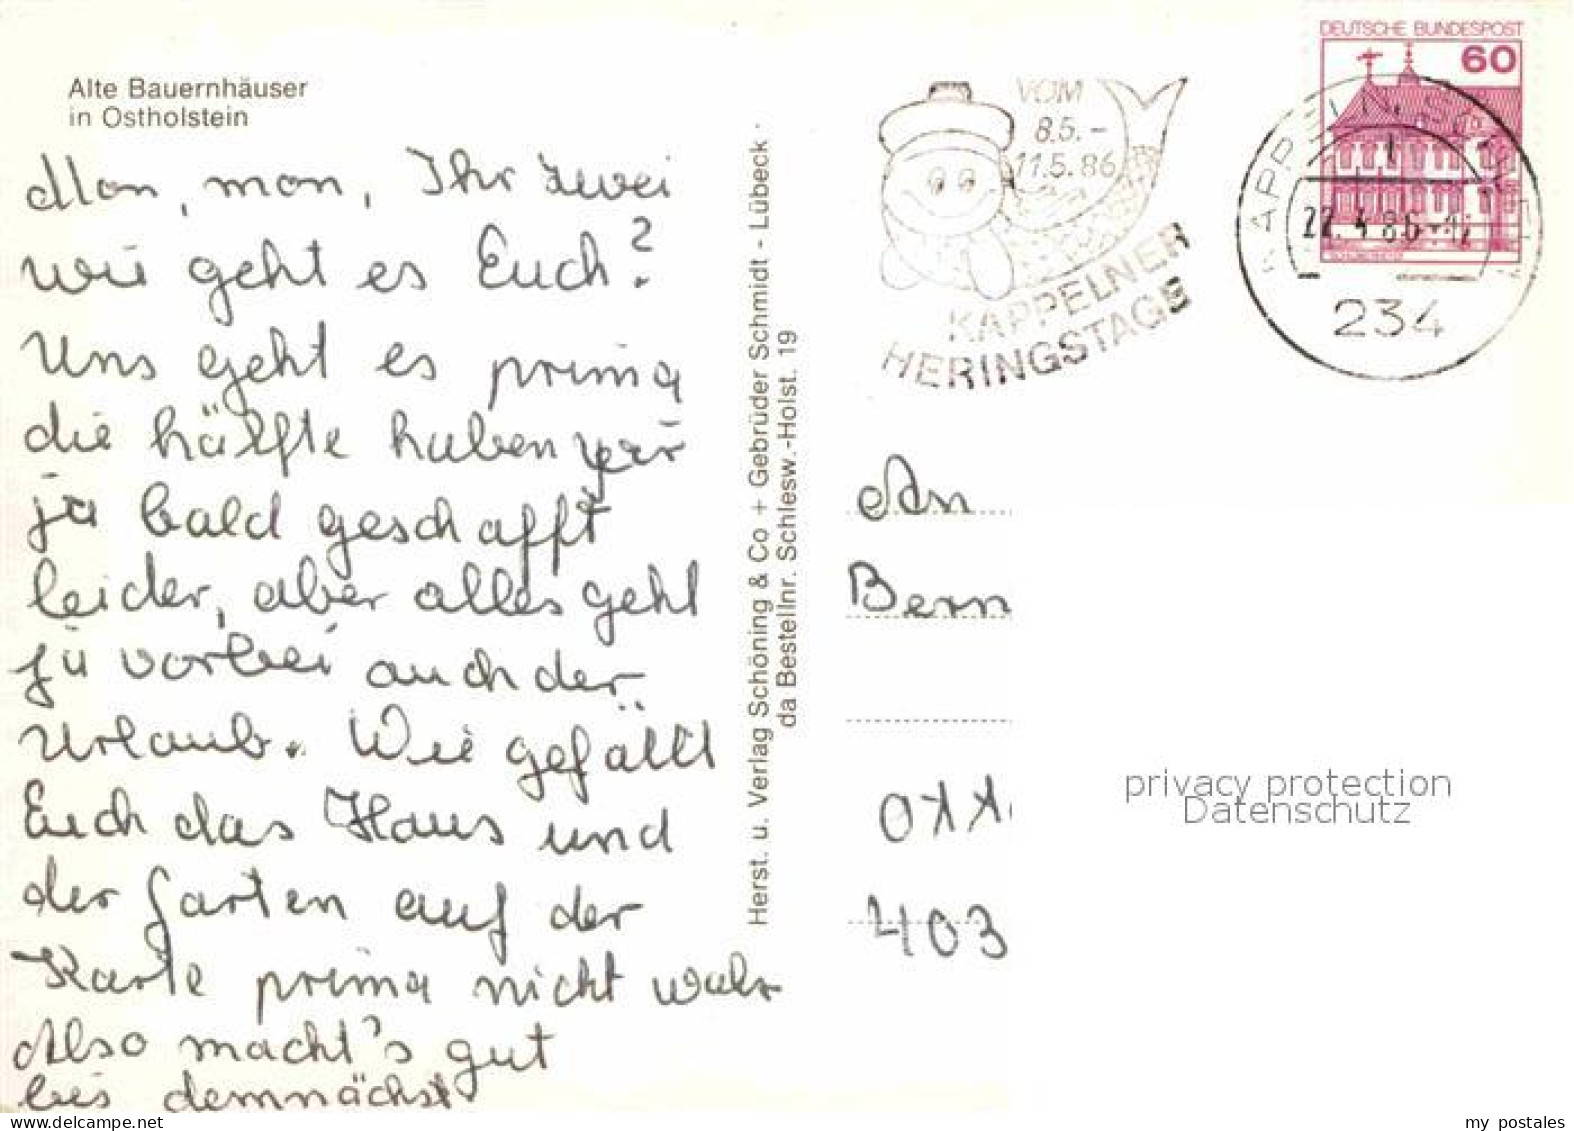 Alte Bauernhäuser
in Ostholstein
Mon, mon, Ihr zwei
wie geht es Euch?
Uns geht es prima
die hälfte haben wir
ja bald geschafft
leider, aber alles geht
ja vorbei auch der
Urlaub. Wie gefällt
Euch das Haus und
der Garten auf der
Karte prima nicht wahr
Also macht's gut
bis demnächst
Herst. u. Verlag Schöning & Co + Gebrüder Schmidt - Lübeck
da Bestellnr. Schlesw.-Holst. 19
VOM
8.5.-
11.5.86
KAPPELNER
HERINGSTAGE
DEUTSCHE BUNDESPOST
60
KAPPELN, SCHLEI
22.4.86-12
234
An
Bern
403
privacy protection
Datenschutz
my postales
delcampe.net